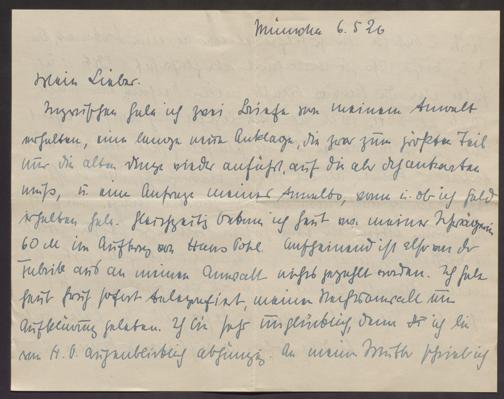 München 6.5.26
Mein Lieber.
Inzwischen habe ich zwei Briefe von meinem Anwalt
erhalten, eine lange neue Anklage, die zwar zum größten Teil
nur die alten Dinge wieder anführt, auf die aber
muß, u. eine Anfrage meines Anwalts, wann u. ob ich Geld
erhalten habe. Gleichzeitig bekam ich heut von meiner Schwägerin
60 M im Auftrag von Hans Pohl. Anscheinend ist also von der
Fabrik aus an meinen Anwalt nichts gezahlt worden. Ich habe
heut früh sofort telegrafiert, meinen Rechtsanwalt um
Aufklärung gebeten. Ich bin sehr unglücklich denn ich bin
von H. augenblicklich abhängig. An meine Mutter schrieb ich